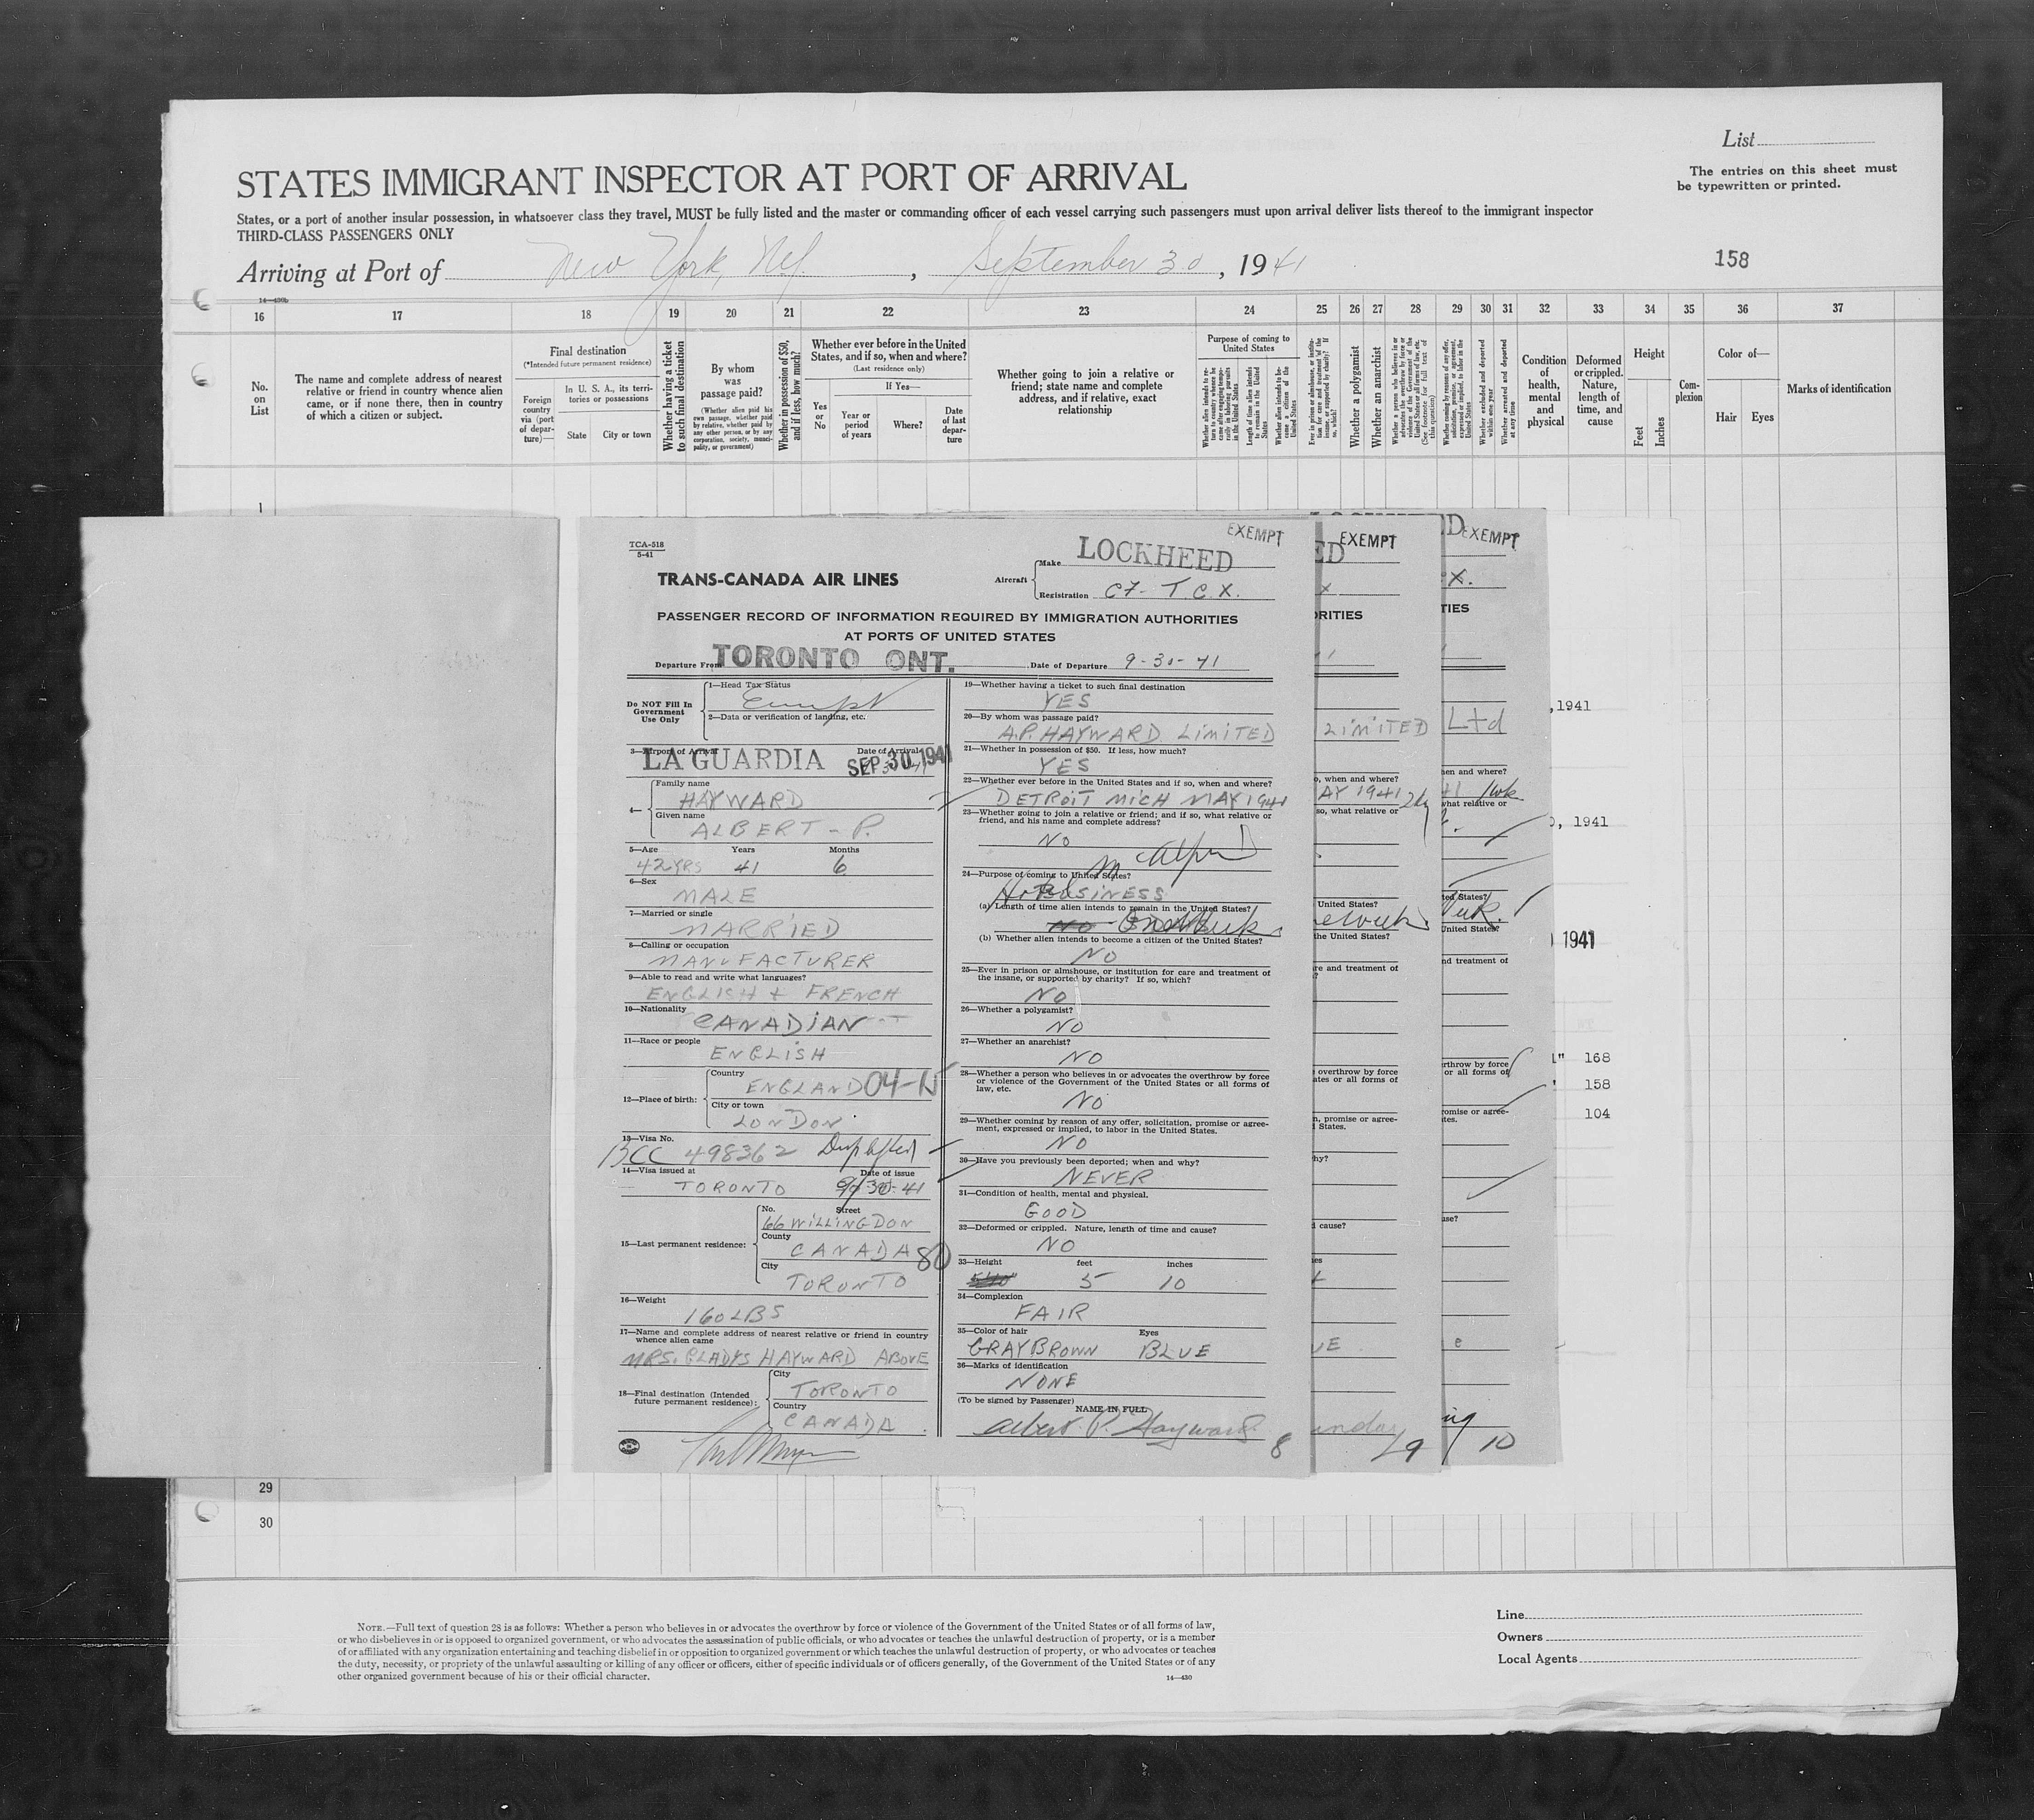 List
The entries on this sheet must
be typewritten or printed.
STATES IMMIGRANT INSPECTOR AT PORT OF ARRIVAL
States, or a port of another insular possession, in whatsoever class they travel, MUST be fully listed and the master or commanding officer of each vessel carrying such passengers must upon arrival deliver lists thereof to the immigrant inspector
THIRD-CLASS PASSENGERS ONLY
Arriving at Port of New York, NY. , September 30 , 1941
158
16 17 18 19 20 21 22 23 24 25 26 27 28 29 30 31 32 33 34 35 36 37
No. on List
The name and complete address of nearest
relative or friend in country whence alien
came, or if none there, then in country
of which a citizen or subject.
Final destination
(*Intended future permanent residence)
Foreign country via (port of departure)—
In U. S. A., its territories or possessions
State
City or town
Whether having a ticket to such final destination
By whom was passage paid?
(Whether alien paid his own passage, whether paid by relative, whether paid by any other person, or by any corporation, society, municipality, or government)
Whether in possession of $50, and if less, how much?
Whether ever before in the United
States, and if so, when and where?
(Last residence only)
Yes or No
If Yes—
Year or period of years
Where?
Date of last departure
Whether going to join a relative or
friend; state name and complete
address, and if relative, exact
relationship
Purpose of coming to
United States
Whether a polygamist
Whether an anarchist
Condition of health, mental and physical
Deformed or crippled. Nature, length of time, and cause
Height
Feet
Inches
Complexion
Color of—
Hair
Eyes
Marks of identification
1
TCA-518
5-41
EXEMPT
TRANS-CANADA AIR LINES
Aircraft
Make LOCKHEED
Registration CF- T.C.X.
PASSENGER RECORD OF INFORMATION REQUIRED BY IMMIGRATION AUTHORITIES
AT PORTS OF UNITED STATES
Departure From TORONTO ONT. Date of Departure 9-30-41
Do NOT Fill In
Government
Use Only
1—Head Tax Status
2—Data or verification of landing, etc.
3—Airport of Arrival LA GUARDIA
Date of Arrival SEP 30 1941
4—
Family name
HAYWARD
Given name
ALBERT - P.
5—Age Years Months
42 YRS 41 6
6—Sex
MALE
7—Married or single
MARRIED
8—Calling or occupation
MANUFACTURER
9—Able to read and write what languages?
ENGLISH & FRENCH
10—Nationality
CANADIAN
11—Race or people
ENGLISH
12—Place of birth:
Country
ENGLAND
City or town
LONDON
13—Visa No.
BCC 498362
14—Visa issued at Date of issue
TORONTO 9-30-41
15—Last permanent residence:
No. Street
66 WILLINGDON
County
CANADA 80
City
TORONTO
16—Weight
160 LBS
17—Name and complete address of nearest relative or friend in country
whence alien came
MRS. GLADYS HAYWARD ABOVE
18—Final destination (Intended
future permanent residence):
City
TORONTO
Country
CANADA
19—Whether having a ticket to such final destination
YES
20—By whom was passage paid?
A.P. HAYWARD LIMITED
21—Whether in possession of $50. If less, how much?
YES
22—Whether ever before in the United States and if so, when and where?
DETROIT MICH MAY 1941
23—Whether going to join a relative or friend; and if so, what relative or
friend, and his name and complete address?
NO
24—Purpose of coming to United States?
BUSINESS
(a) Length of time alien intends to remain in the United States?
(b) Whether alien intends to become a citizen of the United States?
NO
25—Ever in prison or almshouse, or institution for care and treatment of
the insane, or supported by charity? If so, which?
NO
26—Whether a polygamist?
NO
27—Whether an anarchist?
NO
28—Whether a person who believes in or advocates the overthrow by force
or violence of the Government of the United States or all forms of
law, etc.
NO
29—Whether coming by reason of any offer, solicitation, promise or agree-
ment, expressed or implied, to labor in the United States.
NO
30—Have you previously been deported; when and why?
NEVER
31—Condition of health, mental and physical.
GOOD
32—Deformed or crippled. Nature, length of time and cause?
NO
33—Height feet inches
5 10
34—Complexion
FAIR
35—Color of hair Eyes
GRAY BROWN BLUE
36—Marks of identification
NONE
(To be signed by Passenger)
NAME IN FULL
Albert P. Hayward
8
EXEMPT
LIMITED
9
EXEMPT
Ltd
10
1941
1941
1941
168
158
104
29
30
NOTE.—Full text of question 28 is as follows: Whether a person who believes in or advocates the overthrow by force or violence of the Government of the United States or of all forms of law,
or who disbelieves in or is opposed to organized government, or who advocates the assassination of public officials, or who advocates or teaches the unlawful destruction of property, or is a member
of or affiliated with any organization entertaining and teaching disbelief in or opposition to organized government or which teaches the unlawful destruction of property, or who advocates or teaches
the duty, necessity, or propriety of the unlawful assaulting or killing of any officer or officers, either of specific individuals or of officers generally, of the Government of the United States or of any
other organized government because of his or their official character.
14—430
Line
Owners
Local Agents